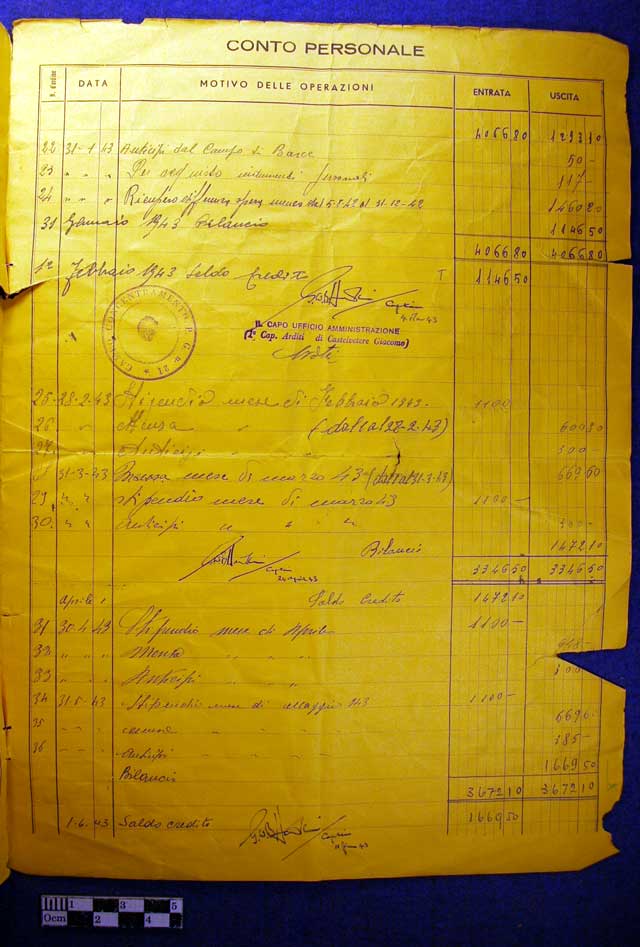 CONTO PERSONALE
N. d'ordine DATA MOTIVO DELLE OPERAZIONI ENTRATA USCITA
4066 80 1293 10
22 31-1-43 Anticipi dal Campo di 50 -
23 " " " Per acquisto indumenti personali 117 -
24 " " " Ricupero mensa dal 5.8.42 al 31-12-42 1460 20
31 Gennaio 1943 Bilancio 1146 50
4066 80 4066 80
1° Febbraio 1943 Saldo Credito 1146 50
CAMPO CONCENTRAMENTO P. G. N. 21
IL CAPO UFFICIO AMMINISTRAZIONE
(1° Cap. Arditi di Castelvetere Giacomo)
25- 28-2-43 Stipendio mese di Febbraio 1943. 1100
26. " Mensa " (dal 1 al 28-2-43) 600 80
27. " Anticipi " 300 -
31-3-43 mese di marzo 43 (dal 1 al 31-3-43) 669 60
29 " " Stipendio mese di marzo 43 1100 -
30. " " Anticipi " " " 300 -
Bilancio 1472 10
3346 50 3346 50
Aprile 1 Saldo Credito 1472 10
31 30-4-43 Stipendio mese di Aprile 1100 -
32 " " " Mensa " " " 648 -
33 " " " Anticipi " " " 300 -
34 31.5.43 Stipendio mese di Maggio 943 1100 -
35 mensa 669 60
36 Anticipi 385 -
Bilancio 1669 50
3672 10 3672 10
1-6-43 Saldo credito 1669 50
0cm 1 2 3 4 5